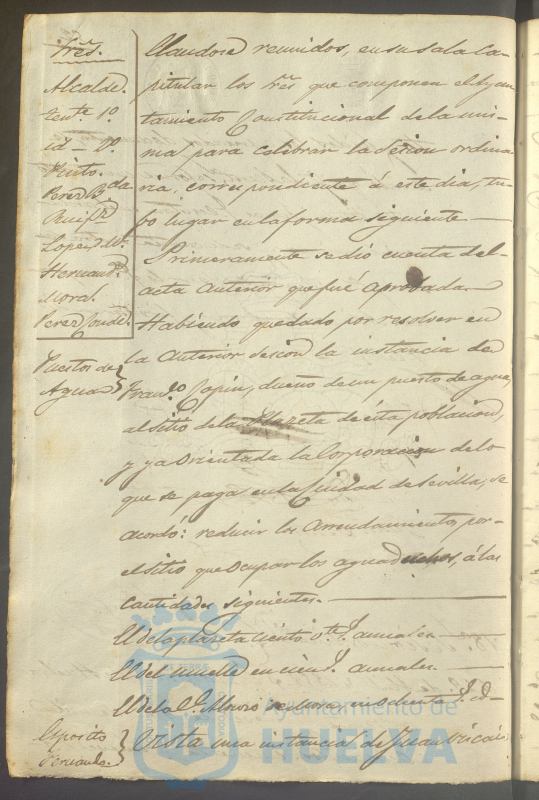 Sres.
Alcalde.
Tente. 1º
id - 2º
Pinto.
Perez B.
Lopez
Hernand.
Moral.
Perez Conde.
Hallandose reunidos, en su sala Ca-
pitular los Sres que componen el Ayun-
tamiento Constitucional de la mis-
ma para celebrar la Sesion ordina-
ria, correspondiente á este dia, tu-
bo lugar en la forma siguiente
Primeramente se dió cuenta del
acta anterior que fué aprobada.
Habiendo quedado por resolver en
Puestos de
Agua
la anterior sesion la instancia de
Fran.co dueño de un puesto de agua
al sitio de la Plazeta de ésta poblacion,
y ya Orientada la Corporacion de lo
que se paga en la Ciudad de Sevilla, se
acordó: reducir los Arrendamientos por
el sitio que Ocupan los aguaduchos, á las
cantidades siguientes.
El de la plazeta ciento anuales
El del Muelle en cien anuales
El de la en ochenta
Esposito
Fernando.
Vista una instancia de Juan
Ayuntamiento de
HUELVA